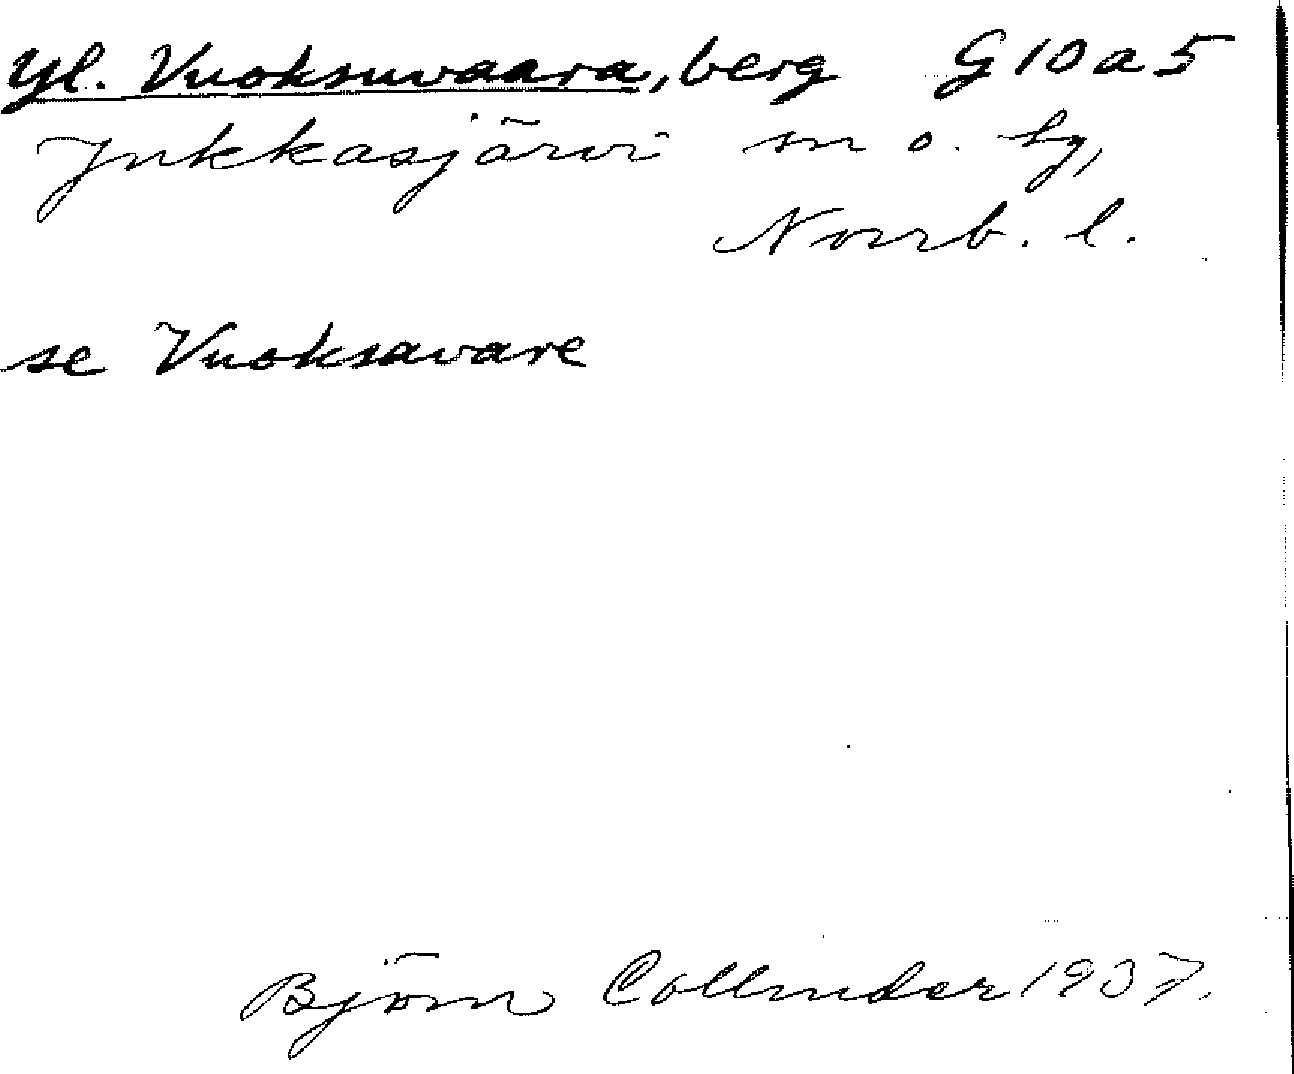 Yl. Vuoksuvaara, berg G 10 a 5
Jukkasjärvi sn o. tg,
Norrb. l.
se Vuoksavare
Björn Collinder 1937.